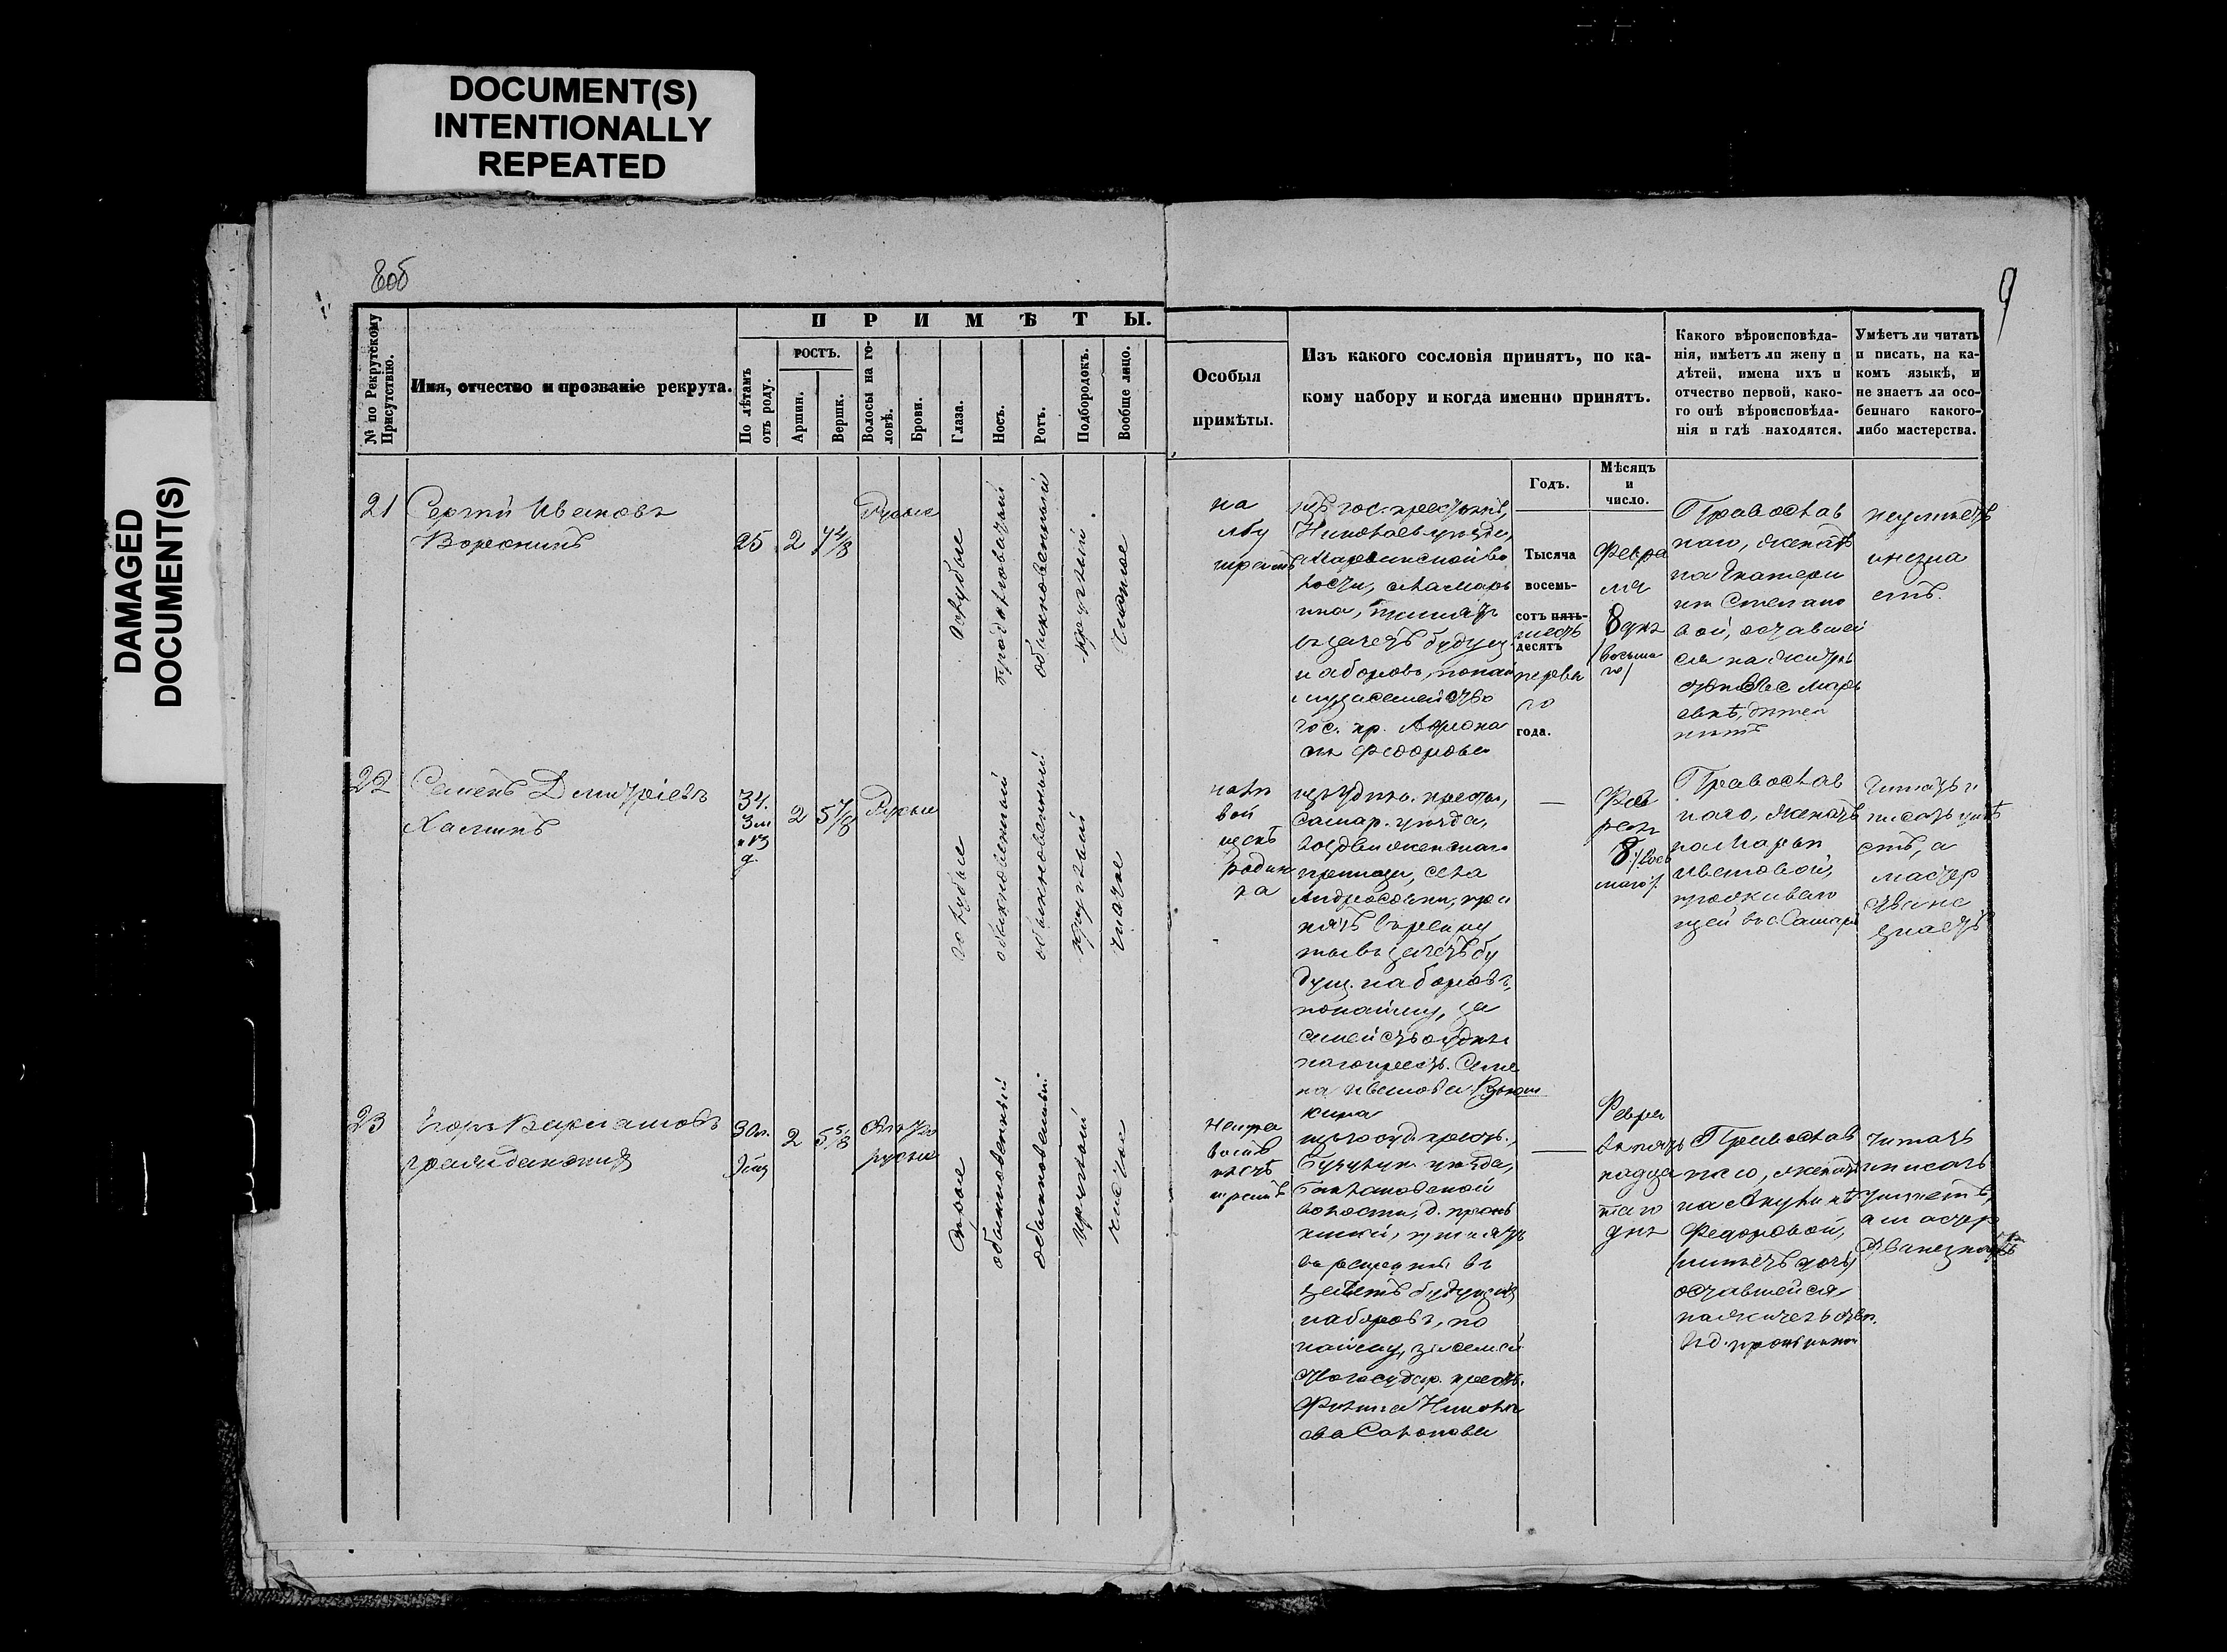 DOCUMENT(S)
INTENTIONALLY
REPEATED
DAMAGED
DOCUMENT(S)
8об
9
№ по Рекрутскому
Присутствію.
Имя, отчество и прозваніе рекрута.
ПРИМѢТЫ.
По лѣтамъ
отъ роду.
РОСТЪ.
Аршин.
Вершк.
Волосы на го-
ловѣ.
Брови.
Глаза.
Носъ.
Ротъ.
Подбородокъ.
Вообще лицо.
Особыя
примѣты.
Изъ какого сословія принятъ, по ка-
кому набору и когда именно принятъ.
Какого вѣроисповѣда-
нія, имѣетъ ли жену и
дѣтей, имена ихъ и
отчество первой, како-
го онѣ вѣроисповѣда-
нія и гдѣ находятся.
Умѣетъ ли читать
и писать, на ка-
комъ языкѣ, и
не знаетъ ли осо-
беннаго какого-
либо мастерства.
Годъ.
Мѣсяцъ
и
число.
21
Сергѣй Ивановъ
Воронинъ
25
2
7 4/8
Русые
голубые
обыкновенный
круглый
чистое
на
лбу
шрамъ
изъ гос. крестьянъ,
Николаев. уѣзда,
волости, села Марь
въ зачетъ будущ.
наборовъ, по най
му за семейство
гос. кр.
Федорова
Тысяча
восемь-
сотъ пять-
шесть
десятъ
перва
го
года.
Февра
ля
8 дня
/восьма
го/
Православ
наго, женатъ
на Екатери
нѣ Степано
вой, оставшей
ся на житель
ствѣ въ с. Марь
евкѣ, дѣтей
нѣтъ
неумѣетъ
и незна
етъ.
22
Семенъ Дмитріевъ
Халинъ
34.
3 м
2
5 7/8
Русые
голубые
обыкновенный
обыкновенный
круглый
чистое
на лѣ
вой
щекѣ
родин
ка
изъ удѣл. крестьян,
Самар. уѣзда,
приказа, села
Андросовки, при
нятъ въ рекру
ты въ зачетъ бу
дущ. наборовъ,
по найму, за
семейство удѣль
наго крест. Семе
на Иванова
кина
Фев
раля
8 /вось
маго/.
Православ
наго, женатъ
на Марьѣ
Ивановой,
проживаю
щей въ г. Самарѣ
Читать и
писать умѣ
етъ, а
мастер
ства не
знаетъ
23
Егоръ Варламовъ
30 л.
2
5 5/8
свѣтло
русые
сѣрые
обыкновенный
обыкновенный
круглый
чистое
на пра
вой
шрамъ
изъ госуд. крест.,
Бузулук. уѣзда,
волости, д. Прось
кинки, принятъ
въ рекруты въ
зачетъ будущихъ
наборовъ, по
найму, за семей
ство государ. крест.
Филипа Никола
ева Сапонова
Февра
ля пят
надца
таго
дня
Православ
наго, женатъ
на Акулинѣ
Федоровой,
имѣетъ дочь
оставшейся
на жительствѣ
въ д.
читать
и писать
умѣетъ,
а мастер
ства не знаетъ